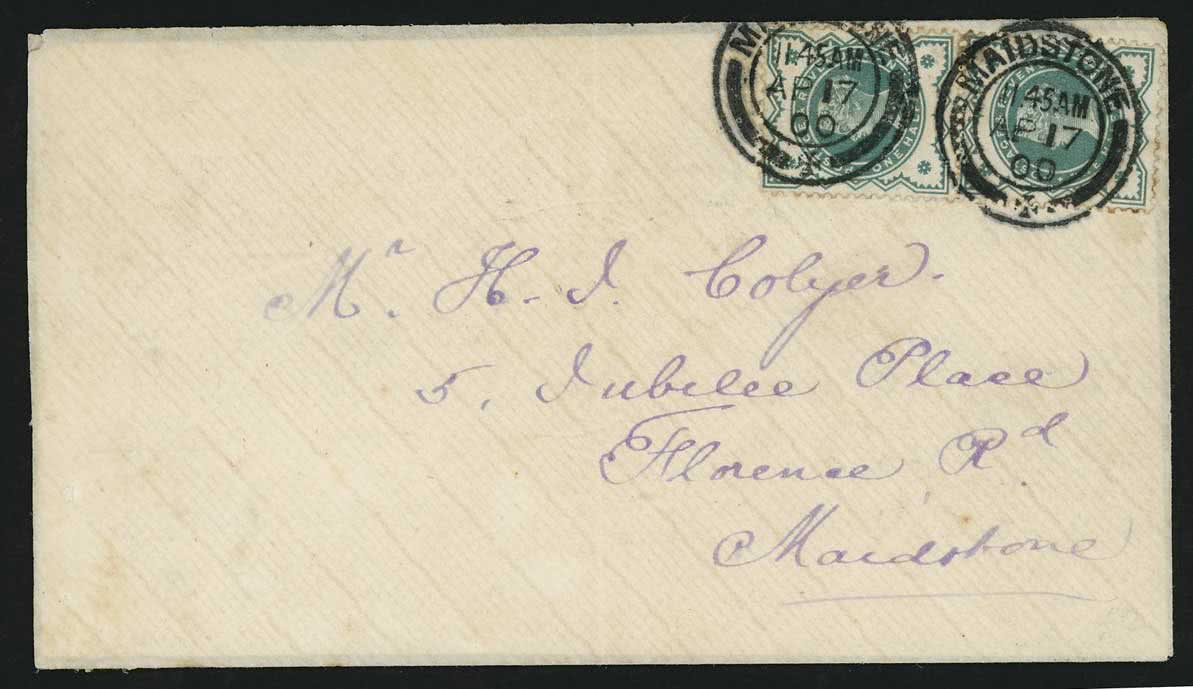 MAIDSTONE
11.45AM
AP 17
00
MAIDSTONE
11.45AM
AP 17
00
Mr. H. J. Colyer.
5, Jubilee Place
Florence Rd
Maidstone